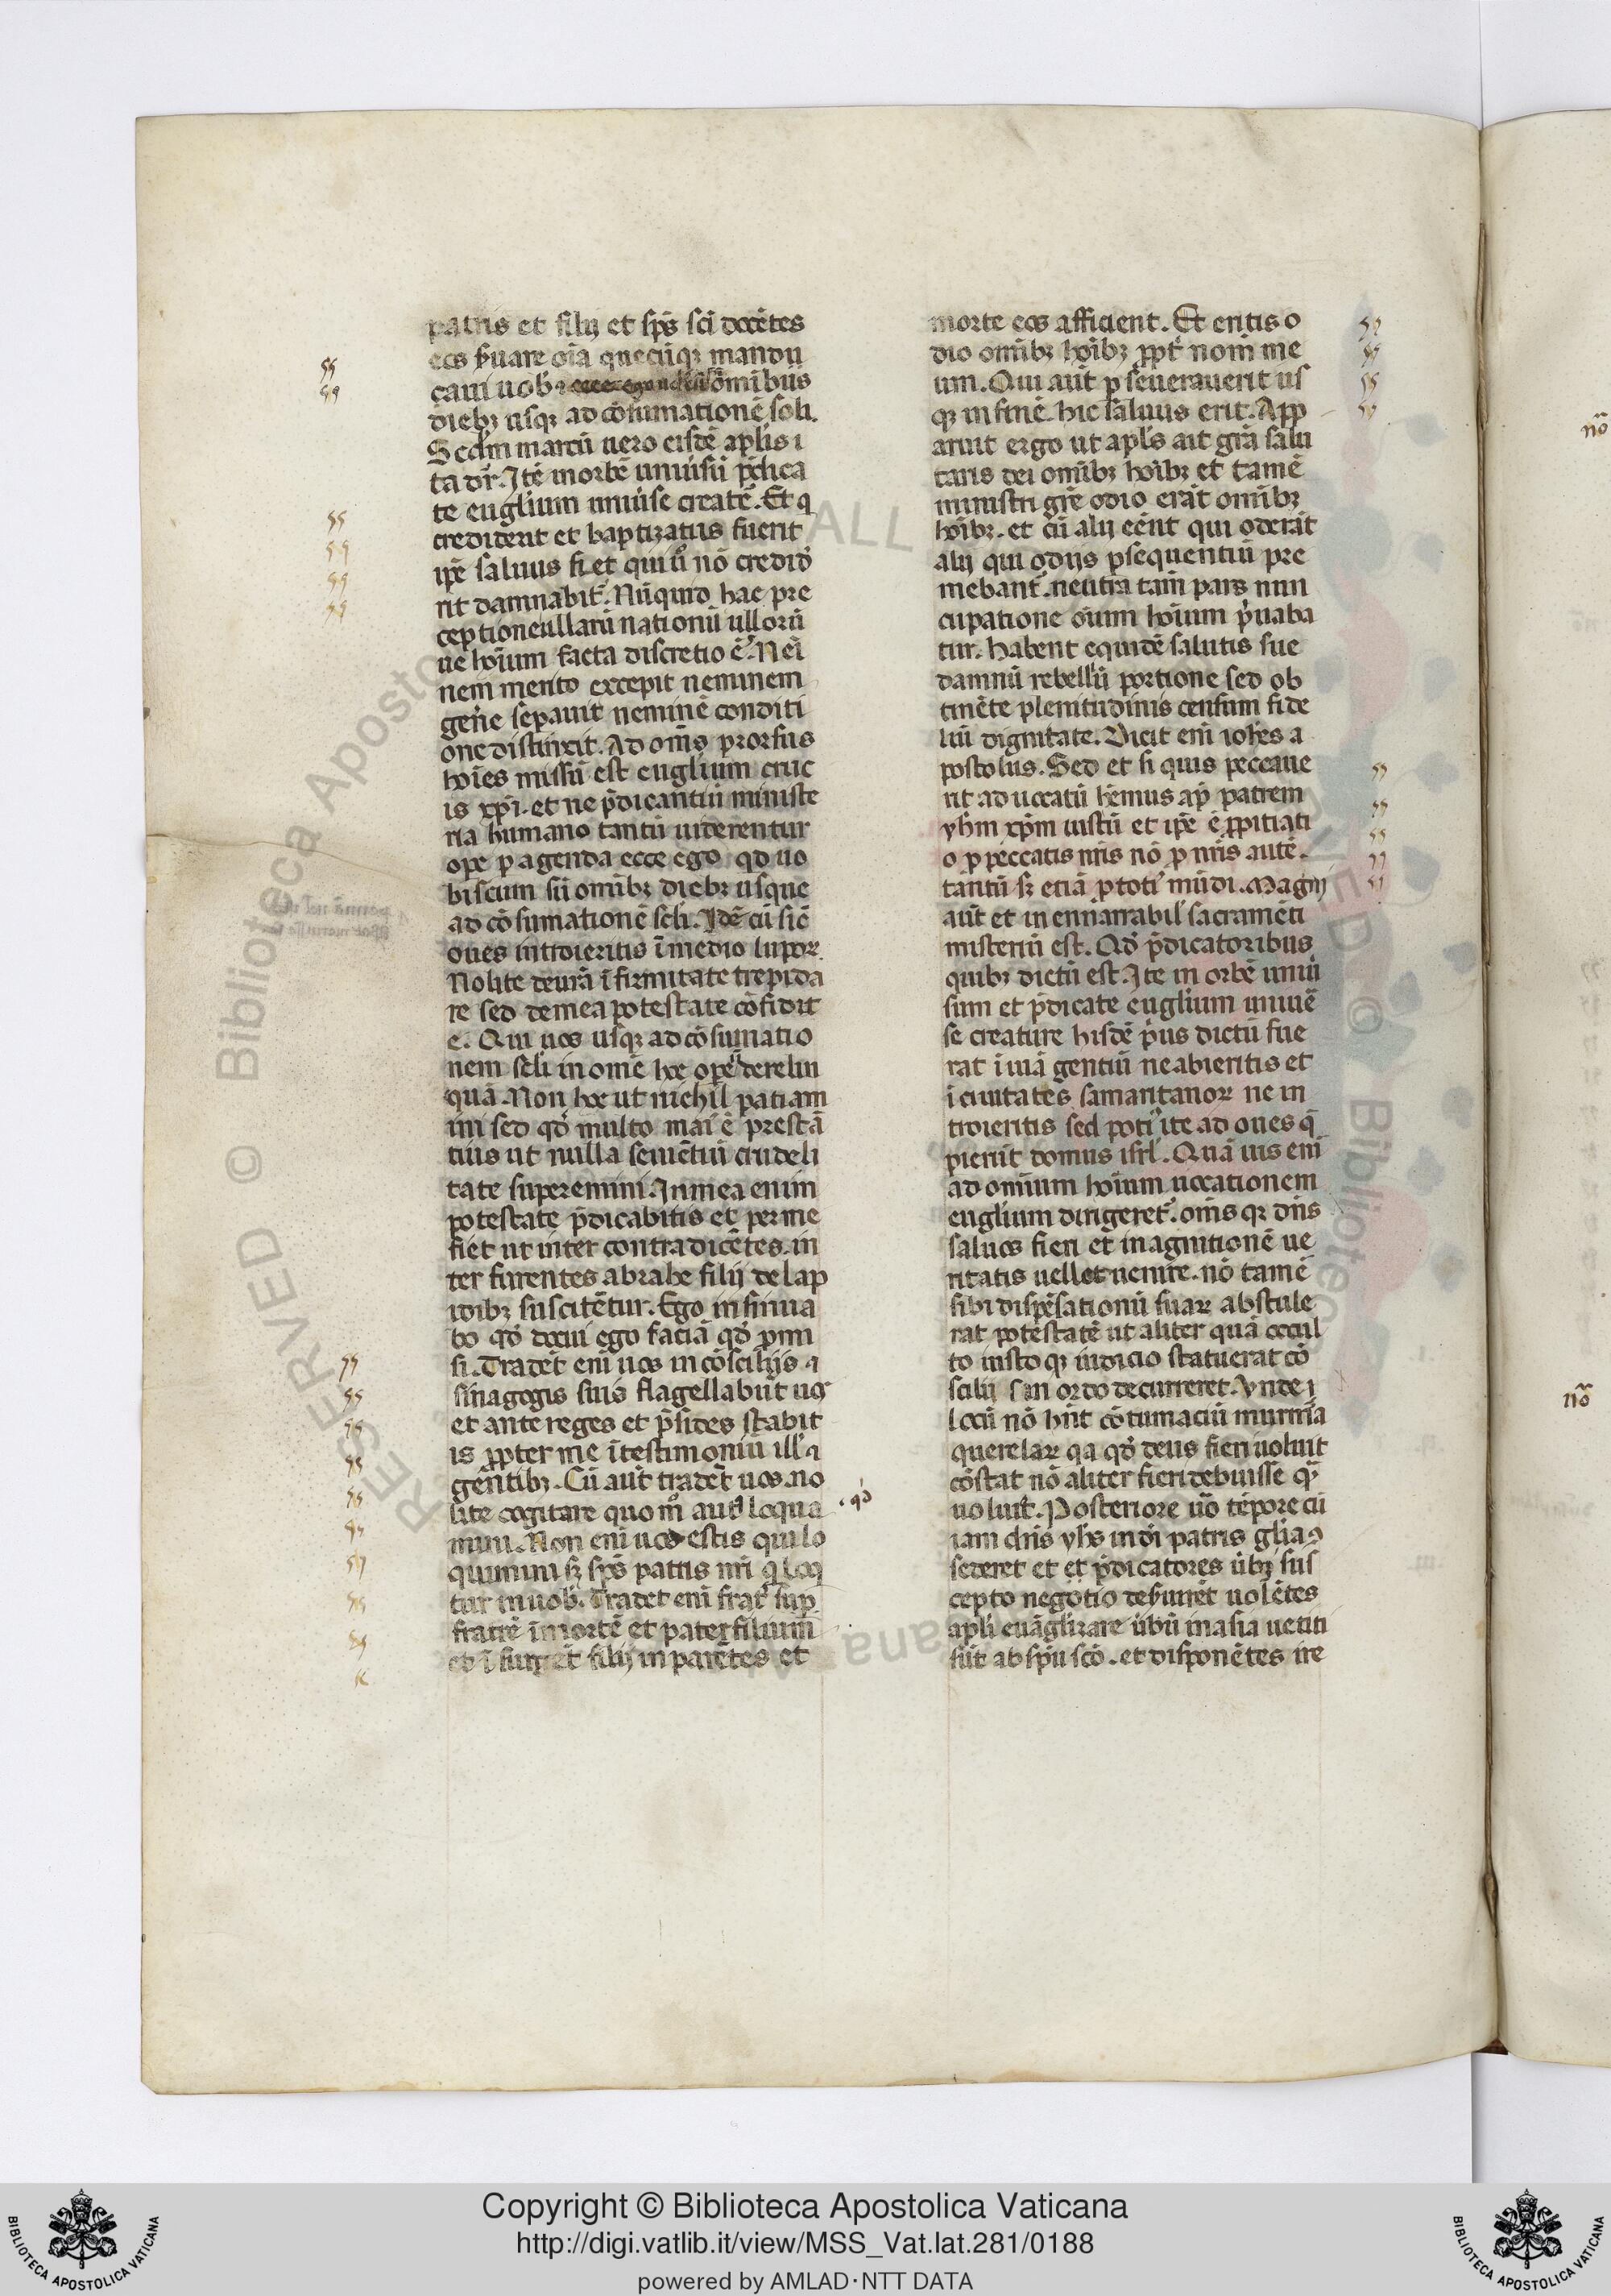 patris et filij et sp̄s sc̄i docētes
eos s̄uare oīa quecūqꝫ mandu
caui uob omibus
diebꝫ usqꝫ ad cōsumationē seli.
Scdm marcū uero eisdē apl̄is i
ta dr̄. Jtē morbē uniusū p̄dica
te euglium uniu̇se creatē. Et q
crediderit et baptizatus fuerit
ip̄e saluus fiet qui u̇o nō credid̓
rit damnabit̄. Nūquid hac pre
ceptione ullarū nationū ullorū
ue hoīum facta discretio ē. Nēi
nem merito excepit neminem
geñe sepauit neminē conditi
one distinxit. Ad om̄s prorsus
hoīes missū est euglium cruc
is xp̄i. et ne p̄dicantiū ministe
ria humano tantū uiderentur
ope pagenda ecce ego qd uo
biscum sū omībꝫ diebꝫ usque
ad cōsumationē seli. Jdē cū sic̄
oues introieritis ī medio lupoꝝ
Nolite deurā īfirmitate trepida
re sed demea potestate cōfidit
e. Qui uos usqꝫ ad cōsumatio
nem seli in omē hoc opē derelin
quā. Non hoc ut nichil patiam
ini sed qd̓ multo mai ē prestā
tius ut nulla seuiētiū crudeli
tate superemini. Jnmea enim
potestate p̄dicabitis et perme
fiet ut inter contradicētes. in
ter furentes abrahe filij delap
idibꝫ suscitētur. Ego insinua
bo qd̓ docui ego faciā qd̓ pmi
si. Tradēt enī uos in cōscilijs ⁊
sinagogis suis flagellabūt uos
et ante reges et p̄sides stabit
is ꝓpter me ītestimoniū ill̓ ⁊
gentibꝫ. Cū aūt tradēt uos. no
lite cogitare quom̊ aud̓ loqua
mini. Non enī uos estis qui lo
quimini sꝫ sp̄s patris nr̄i q loq
tur in uob̓. Tradet enī frat̄ sup
fratrē īmortē et pater filium
et īsurgēt filij in parētes et
morte eos afficient. Et eritis o
dio omībꝫ hoībꝫ ꝓpt̄ nom̄ me
um. Qui aūt pseuerauerit us
qꝫ in finē. hic saluus erit. App
aruit ergo ut apl̄s ait grā salu
taris dei omībꝫ hoībꝫ et tamē
ministri grē odio erāt omībꝫ
hoībꝫ. et cū alij eēnt qui oderāt
alij qui odijs psequentiū pre
mebant̄. neutra tam̄ pars nun
cupatione oīum hoīum p̄uaba
tur. habent equidē salutis sue
damnū rebelliū portione sed ob
tinēte plenitudinis censum fide
liū dignitate. Dicit enī ioh̄es a
postolus. Sed et si quis peccaue
rit aduocatū hēmus ap̄ patrem
yh̄m xp̄m iustū et ip̄e ē ꝓpitiati
o p peccatis nr̄is nō p nr̄is autē.
tantū sꝫ etiā p toti̓ mūdi. Magni
aūt et in ennarrabil̓ sacramēti
misteriū est. Qd̓ p̄dicatoribus
quibꝫ dictū est. Jte in orbē uniu̇
sum et p̄dicate euglium uniuē
se creature hisdē p̄us dictū fue
rat ī uiā gentiū ne abieritis et
ī ciuitates samaritanoꝝ ne in
troieritis sed poti̓ ite ad oues q̄
pierūt domus isrl̓. Quā uis enī
ad omium hoīum uocationem
euglium dirigeret̄. om̄s qꝫ dn̄s
saluos fieri et in agnitionē ue
ritatis uellet uenire. nō tamē
sibi dispēsationū suaꝝ abstule
rat potestatē ut aliter quā occul
to iusto qꝫ iudicio statuerat cō
scilij sui ordo decurreret. Unde i
locū nō hn̄t cōtumaciū murm̄a
querelaꝝ qa qd̓ deus fieri uoluit
cōstat nō aliter fieri debuisse q̄
uoluit. Posteriore uo̓ tēpore cū
iam dn̄s yh̄s in dī patris glia ꝯ
sederet et et p̄dicatores ūbꝫ sus
cepto negotio des̄uirēt uolētes
apl̄i euāglizare ūbū in asia uetiti
sūt ab sp̄u scō. et disponētes ire
nō
nō
Copyright © Biblioteca Apostolica Vaticana
http://digi.vatlib.it/view/MSS_Vat.lat.281/0188
powered by AMLAD·NTT DATA
BIBLIOTECA APOSTOLICA VATICANA
BIBLIOTECA APOSTOLICA VATICANA